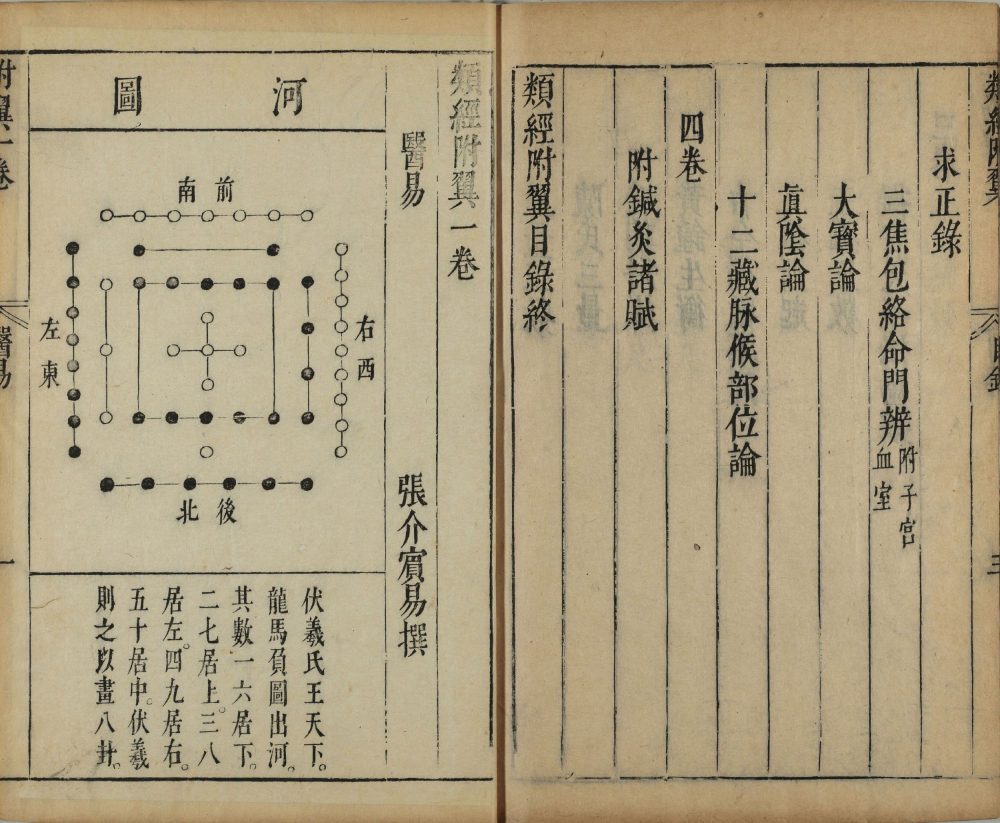 類經附翼
目錄
三
求正錄
三焦包絡命門辨附子宮血室
大寳論
眞陰論
十二藏脉候部位論
四卷
附鍼灸諸賦
類經附翼目錄終
類經附翼一卷
醫易
張介賔易撰
河圖
前南
右西
左東
後北
伏羲氏王天下。
龍馬負圖出河。
其數一六居下。
二七居上。三八
居左。四九居右。
五十居中。伏羲
則之以畫八卦。
附翼一卷
醫易
一